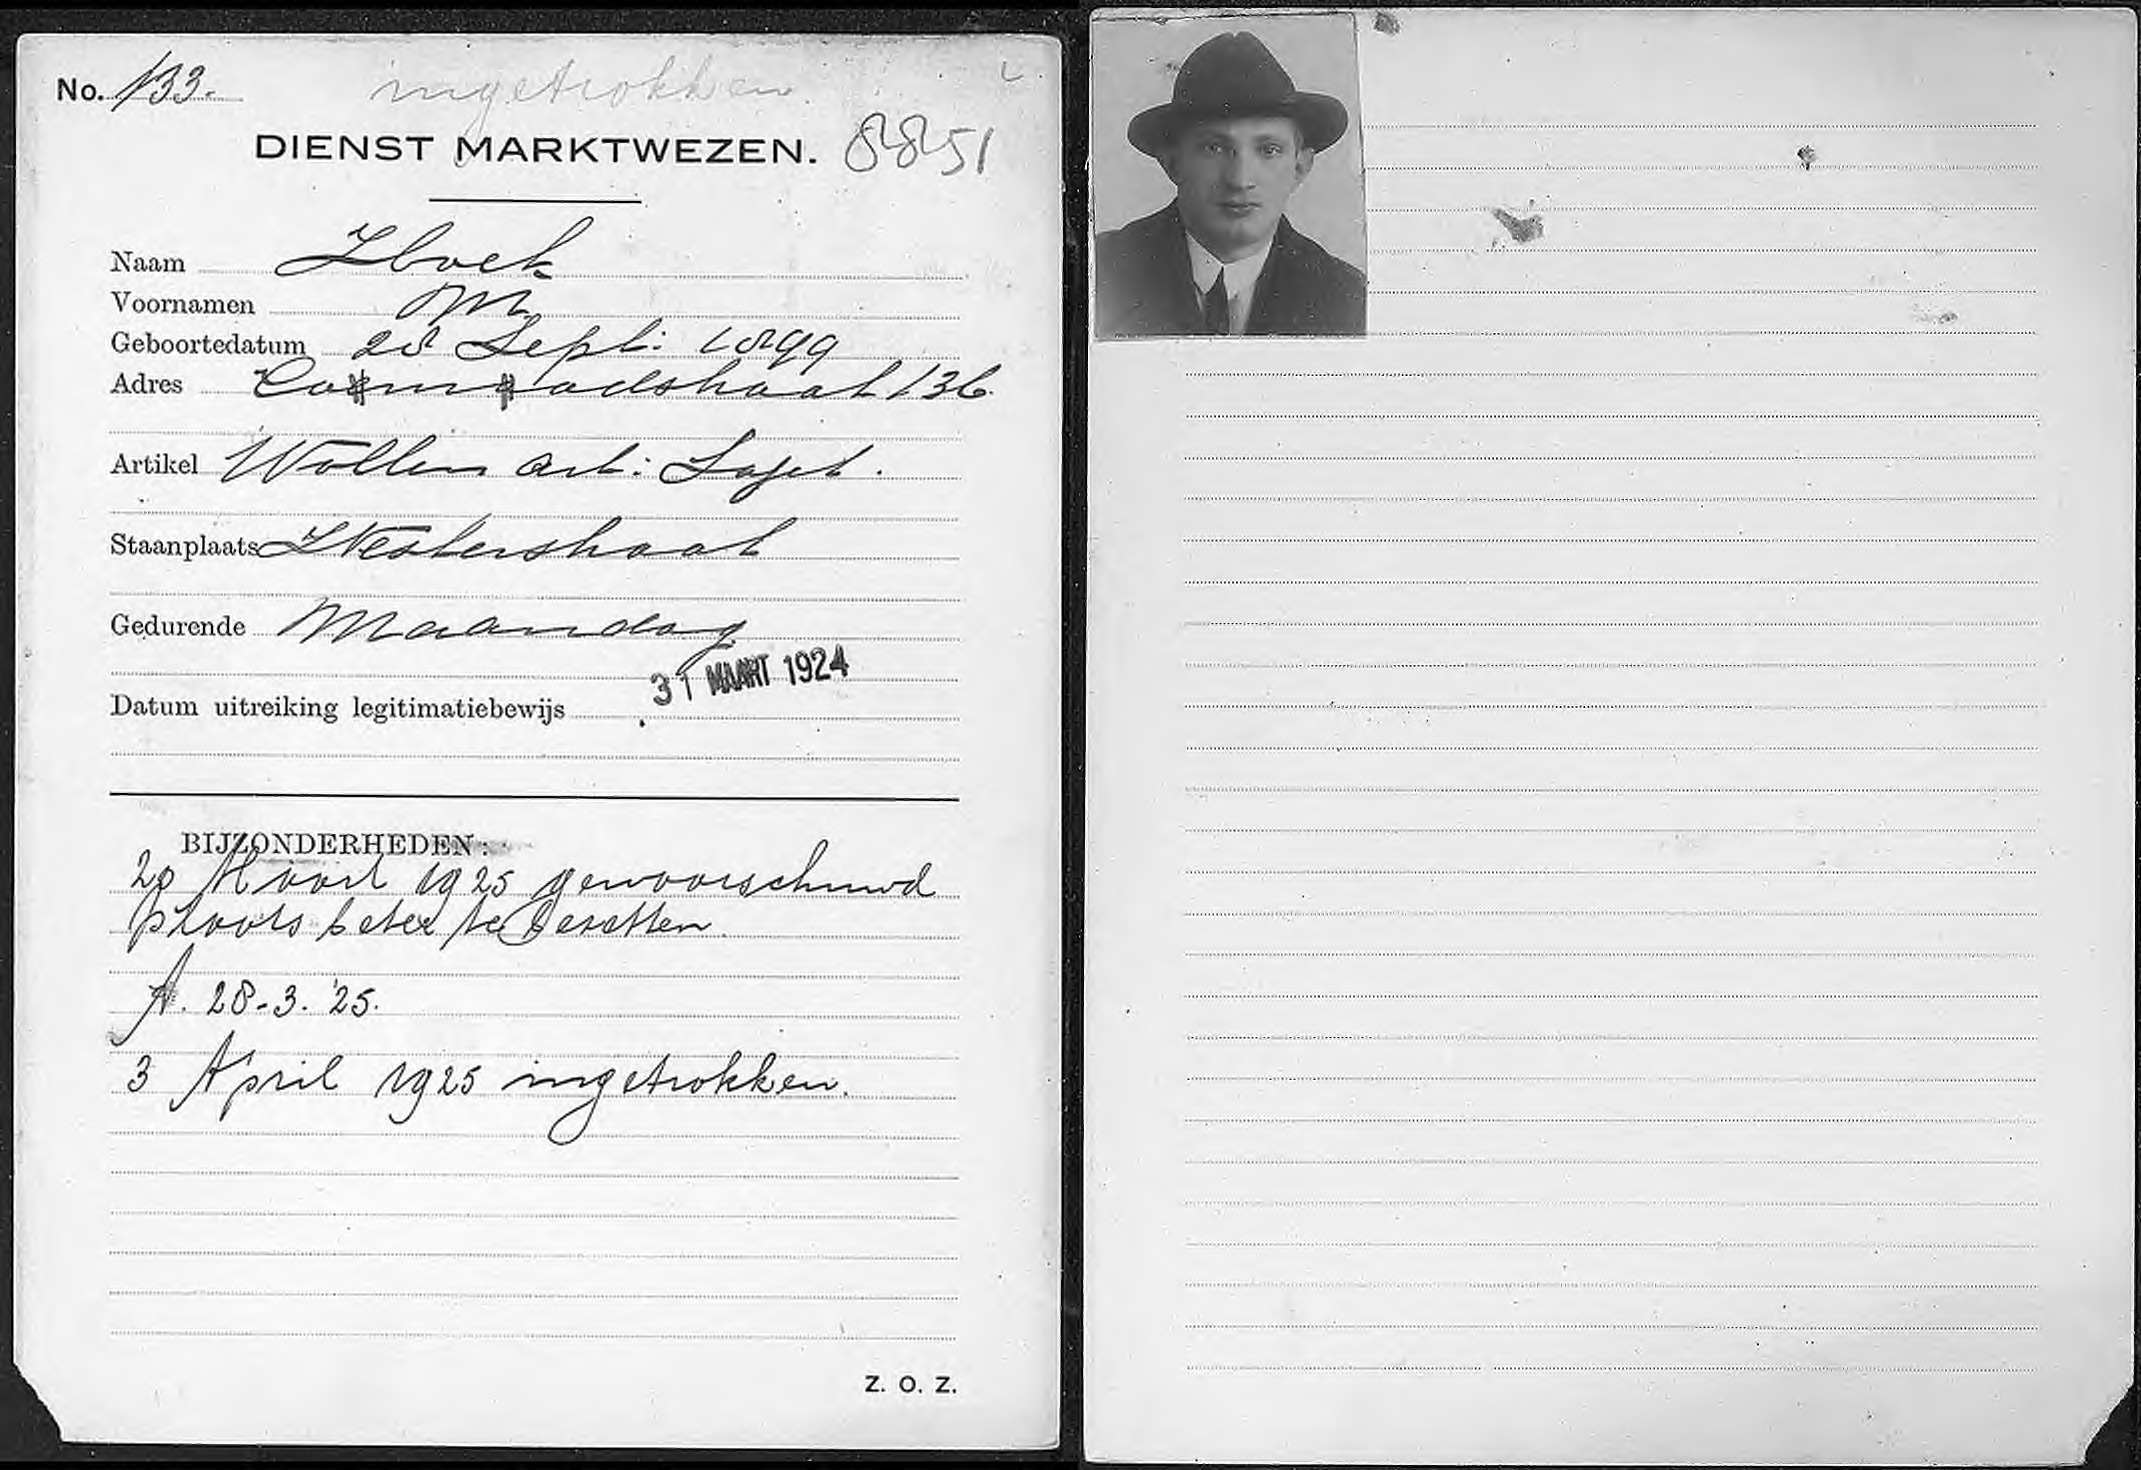 No. 133.
ingetrokken.
DIENST MARKTWEZEN.
8851
Naam
Voornamen M
Geboortedatum 28 Sept: 1899
Adres straat 136.
Artikel Wollen art: Sajet.
Staanplaats Westerstraat
Gedurende Maandag
31 MAART 1924
Datum uitreiking legitimatiebewijs
BIJZONDERHEDEN:
Maart 1925 gewaarschuwd
plaats beter te bezetten.
A. 28-3.'25.
3 April 1925 ingetrokken.
Z. O. Z.